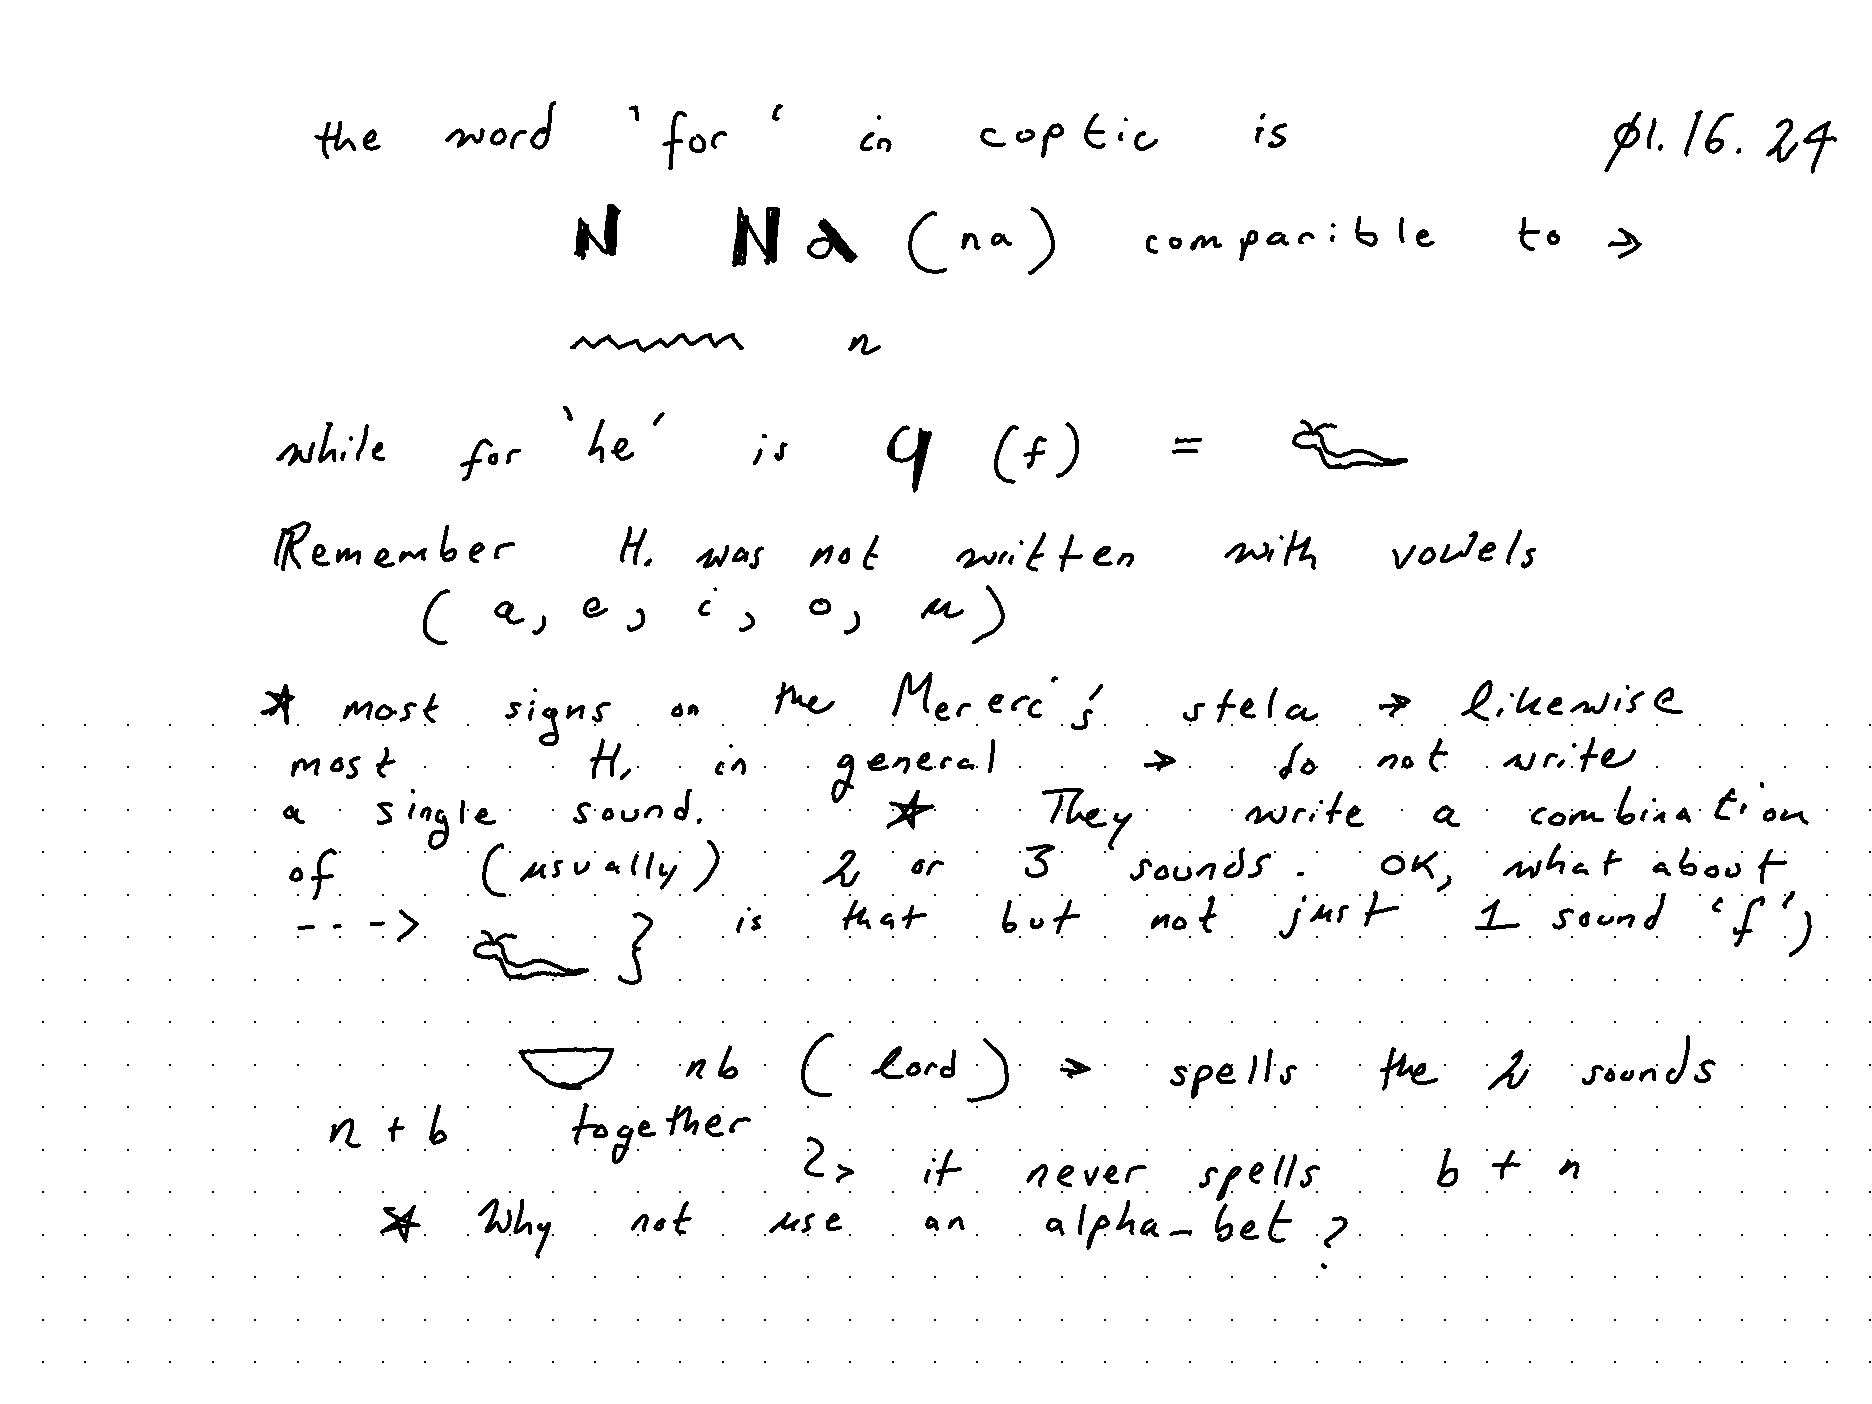 the word 'for' in coptic is 01.16.24
ⲛ ⲛⲁ (na) comparible to →
𓈖 n
while for 'he' is ϥ (f) = 𓆑
Remember H. was not written with vowels
(a, e, i, o, u)
★ most signs on the Mereri's stela → likewise
most H. in general → do not write
a single sound. ★ They write a combination
of (usually) 2 or 3 sounds. OK, what about
---> 𓆑 } is that but not just 1 sound 'f',
𓎟 nb (lord) → spells the 2 sounds
n + b together
↳ it never spells b + n
★ Why not use an alpha-bet?